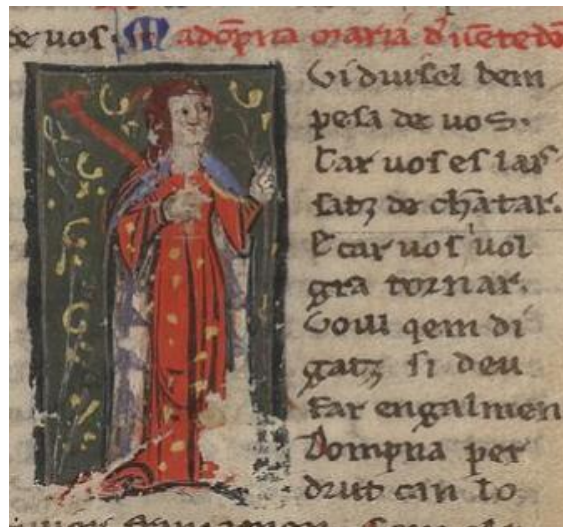 de uos. Madõpna maria d'uẽtedõ
Gi duisel bem
pesa de uos.
Car uos es lais
satz de chãtar.
E car uos uol
gra tornar.
Uoill qem di
gatz si deu
far engalmen
Dompna per
drut can lo